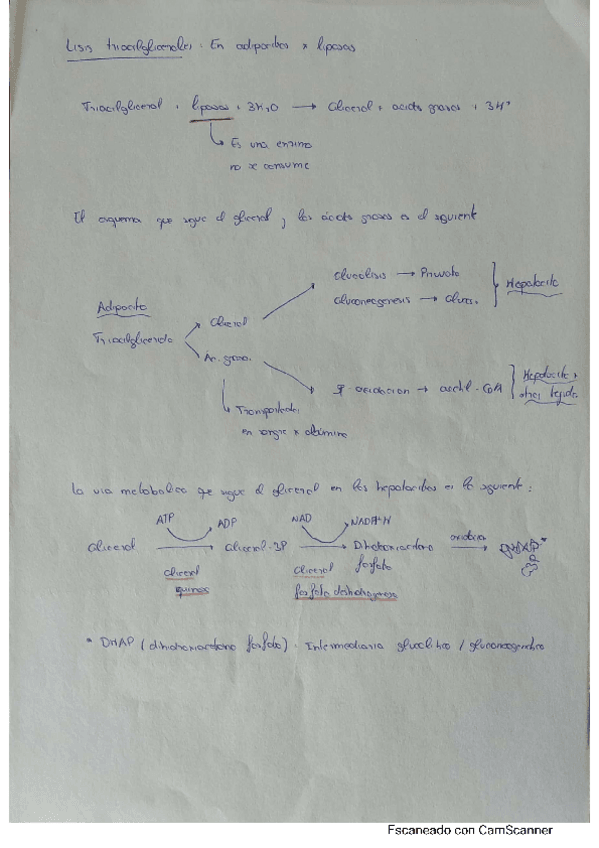 Lisis triacilgliceroles: En adipocitos x lipasas
Triacilglicerol + lipasas + 3H2O → Glicerol + acidos grasos + 3H+
Es una enzima
no se consume
El esquema que sigue el glicerol y los ácidos grasos es el siguiente
Glucolisis → Piruvato
Gluconeogenesis → Gluc.
Hepatocito
Adipocito
Triacilglicerido
Glicerol
Ac. graso.
oxidacion → acetil-CoA
Hepatocito y
otros tejidos
Transportados
en sangre x albúmina
La via metabolica que sigue el glicerol en los hepatocitos es la siguiente:
ATP ADP NAD NADH+H
Glicerol → Glicerol-3P → Dihidroxiacetona fosfato → DHAP*
Glicerol quinasa
Glicerol fosfato deshidrogenasa
* DHAP (dihidroxiacetona fosfato): Intermediario glucolitico / gluconeogenico
Escaneado con CamScanner